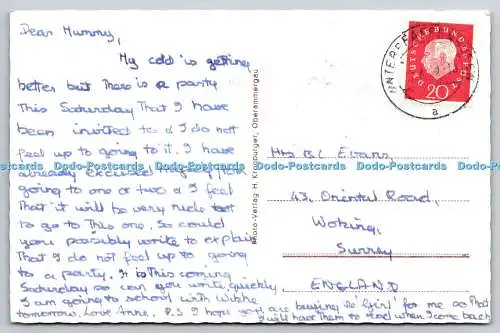 Dear Mummy,
My cold is getting
better but There is a party
This Saturday That I have
been invited to & I do not
feel up to going to it. I have
already excused myself from
going to one or two & I feel
That it will be very rude not
to go to This one. So could
you possibly write to explain
That I do not feel up to going
to a party. It is This coming
Saturday so can you write quickly.
I am going to school with
tomorrow. Love Anne. P.S I hope you are buying for me so That
I might have Them to read when I come back
Photo-Verlag H. Kronburger, Oberammergau
DEUTSCHE BUNDESPOST
20
a
Mrs B.C. Evans,
43, Oriental Road,
Woking,
Surrey
ENGLAND
Dodo-Postcards.com